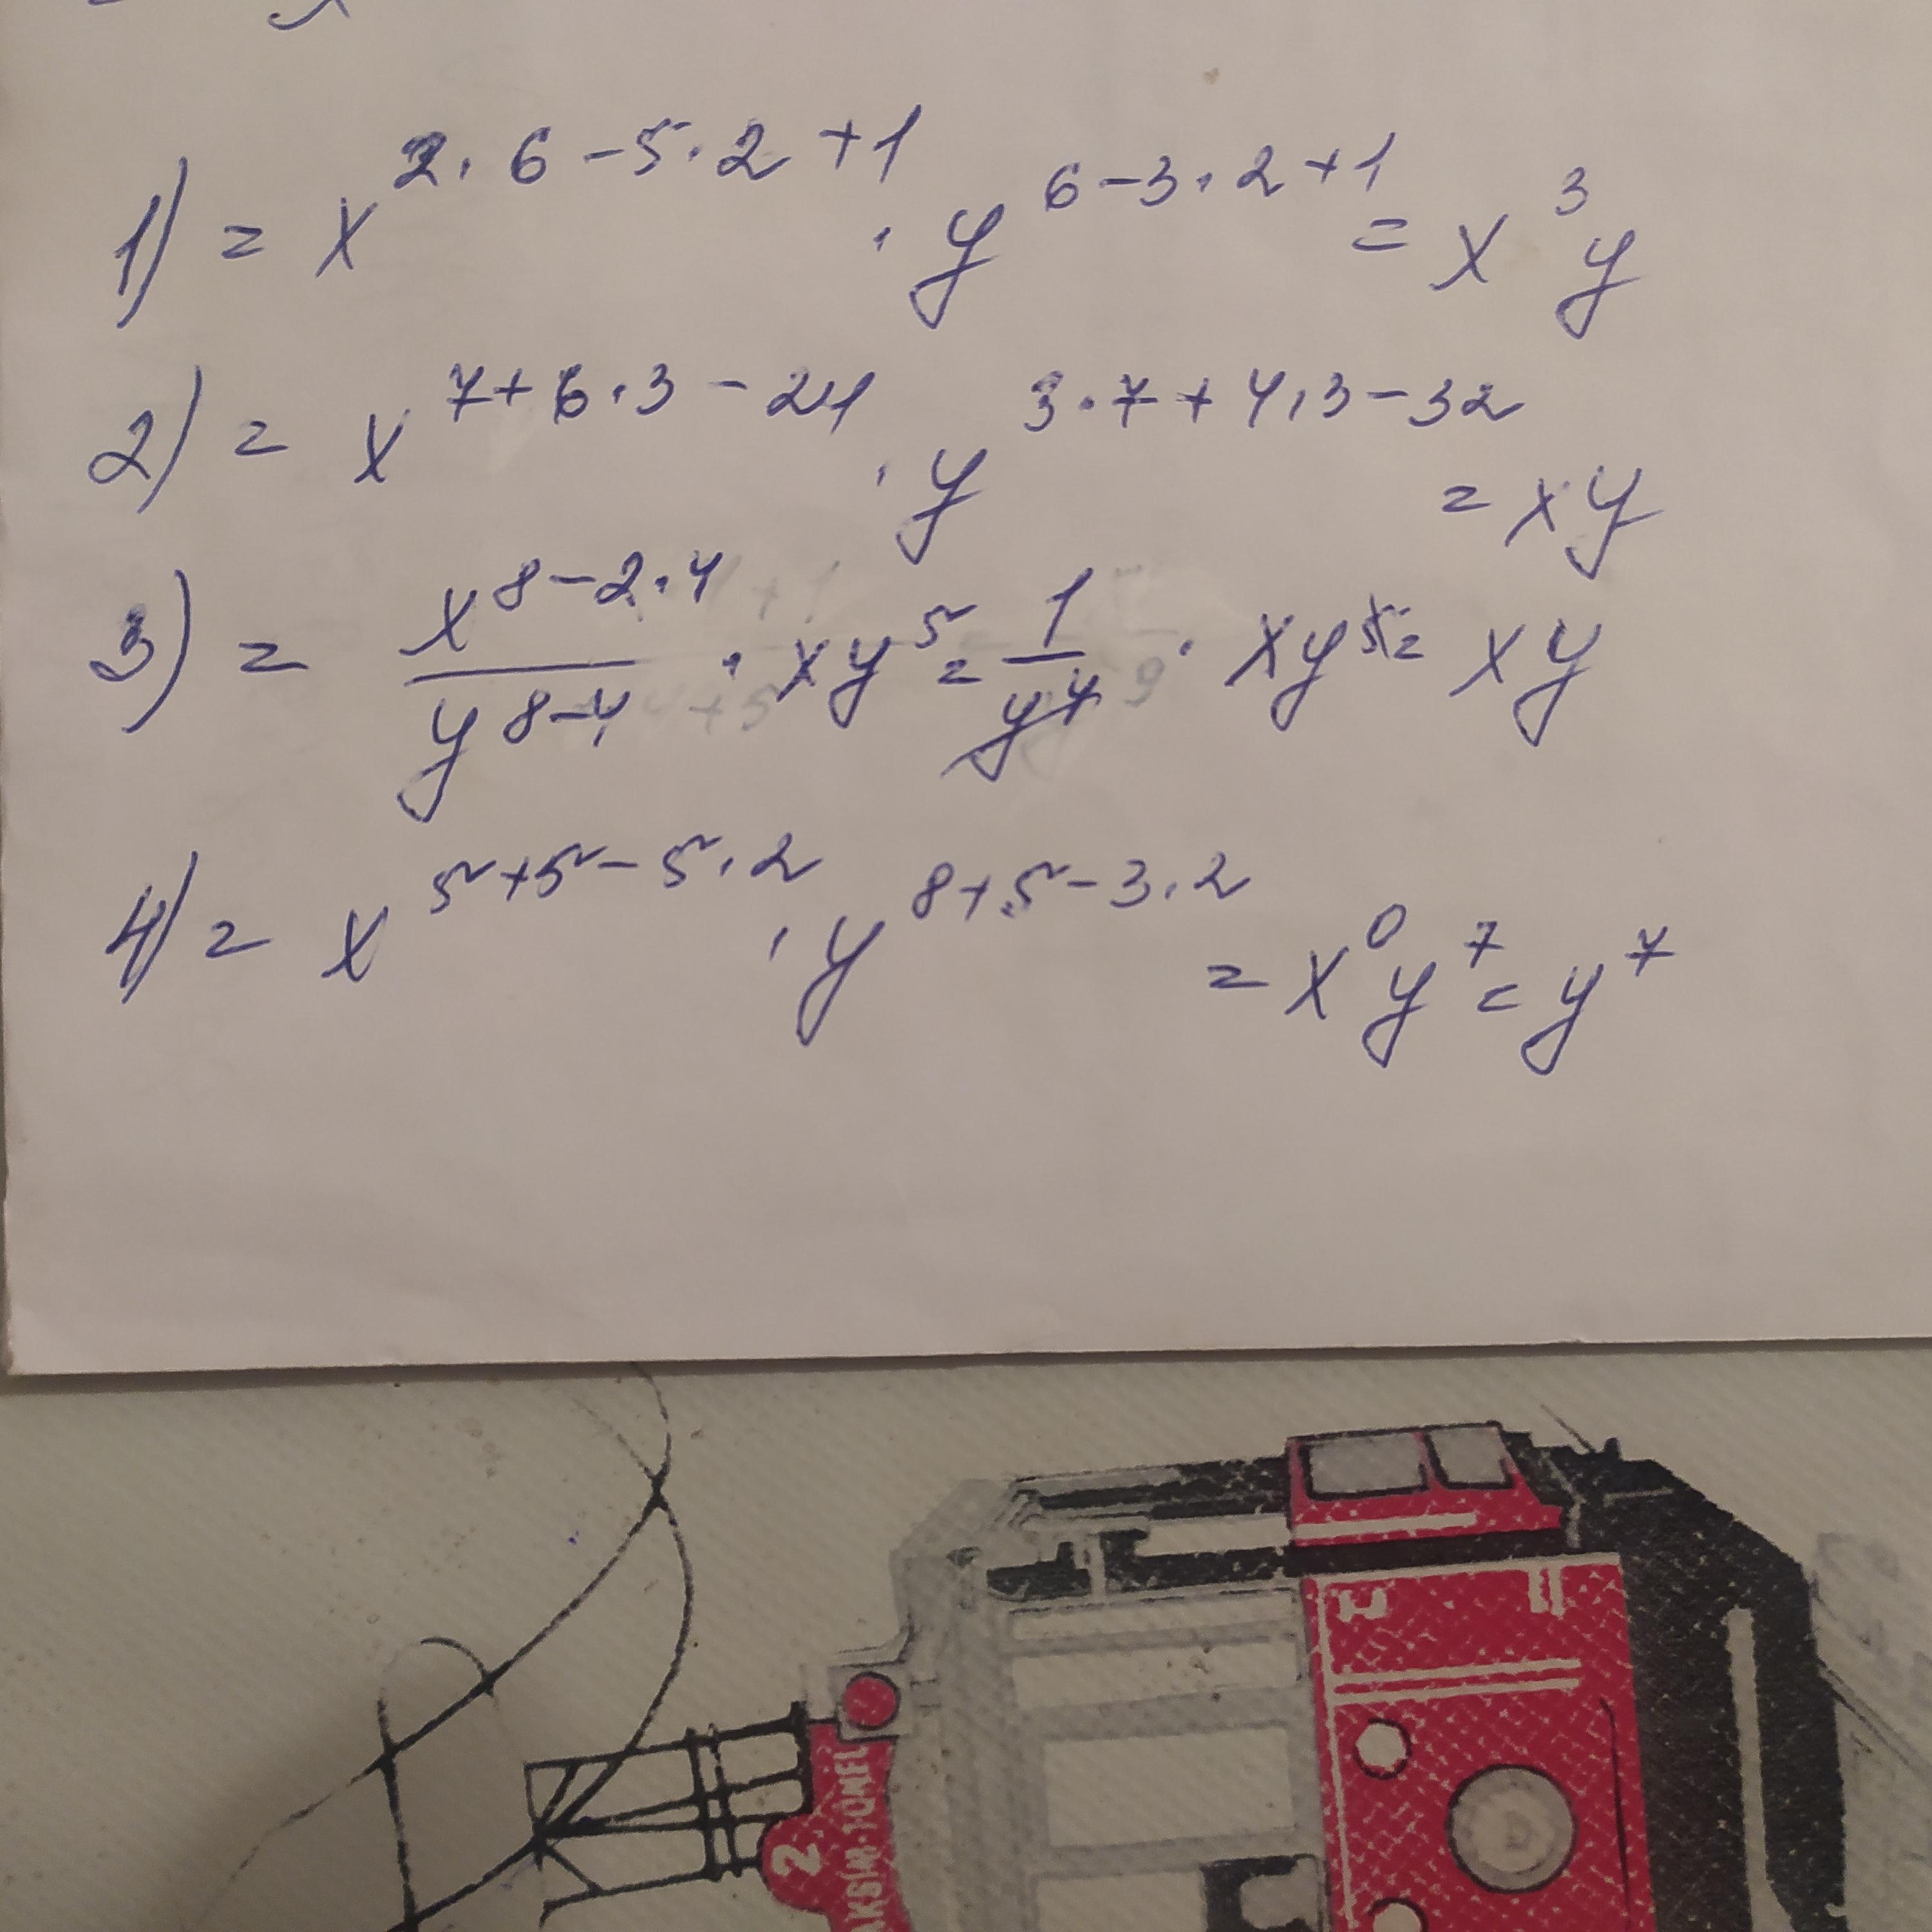 1) = x^{2·6-5·2+1} · y^{6-3·2+1} = x^3 y
2) = x^{7+6·3-24} · y^{3·7+4·3-32} = xy
3) = \frac{x^{8-2·4}}{y^{8-4}} · xy^5 = \frac{1}{y^4} · xy^5 = xy
4) = x^{5+5-5·2} · y^{8+5-3·2} = x^0 y^7 = y^7
2
AKSIM·1ONEL